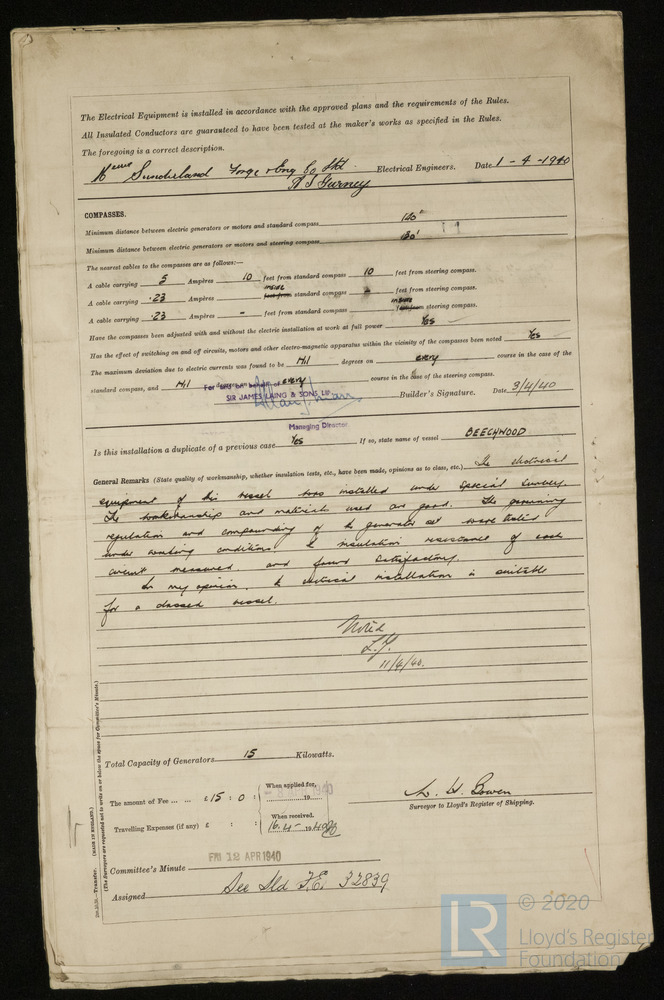 The Electrical Equipment is installed in accordance with the approved plans and the requirements of the Rules.
All Insulated Conductors are guaranteed to have been tested at the maker's works as specified in the Rules.
The foregoing is a correct description.
Sunderland Forge & Eng Co Ltd. Electrical Engineers. Date 1-4-1940
Gurney
COMPASSES.
Minimum distance between electric generators or motors and standard compass 140'
Minimum distance between electric generators or motors and steering compass 130'
The nearest cables to the compasses are as follows:—
A cable carrying 5 Ampères 10 feet from standard compass 10 feet from steering compass.
A cable carrying .23 Ampères inside feet from standard compass feet from steering compass.
A cable carrying .23 Ampères - feet from standard compass inside feet from steering compass.
Have the compasses been adjusted with and without the electric installation at work at full power Yes
Has the effect of switching on and off circuits, motors and other electro-magnetic apparatus within the vicinity of the compasses been noted Yes
The maximum deviation due to electric currents was found to be Nil degrees on every course in the case of the
standard compass, and Nil degrees on every course in the case of the steering compass.
For and on behalf of
SIR JAMES LAING & SONS, LD
Builder's Signature. Date 3/4/40
Managing Director
Is this installation a duplicate of a previous case Yes If so, state name of vessel BEECHWOOD
General Remarks (State quality of workmanship, whether insulation tests, etc., have been made, opinions as to class, etc.) The electrical
equipment of this vessel was installed under Special Survey.
The workmanship and material used are good. The governing
regulation and compounding of the generator set were tested
under working conditions & insulation resistance of each
circuit measured and found satisfactory.
In my opinion, the electrical installation is suitable
for a classed vessel.
Noted
11/4/40.
Total Capacity of Generators 15 Kilowatts.
The amount of Fee ... ... £15 : 0 :
When applied for,
19
Travelling Expenses (if any) £ : :
When received,
16.4- 1940
L. W. Bowen
Surveyor to Lloyd's Register of Shipping.
FRI 12 APR 1940
Committee's Minute
Assigned See Sld F.E. 32839
(MADE IN ENGLAND.)
(The Surveyors are requested not to write on or below the space for Committee's Minute.)
Transfer.
LR
© 2020
Lloyd's Register
Foundation